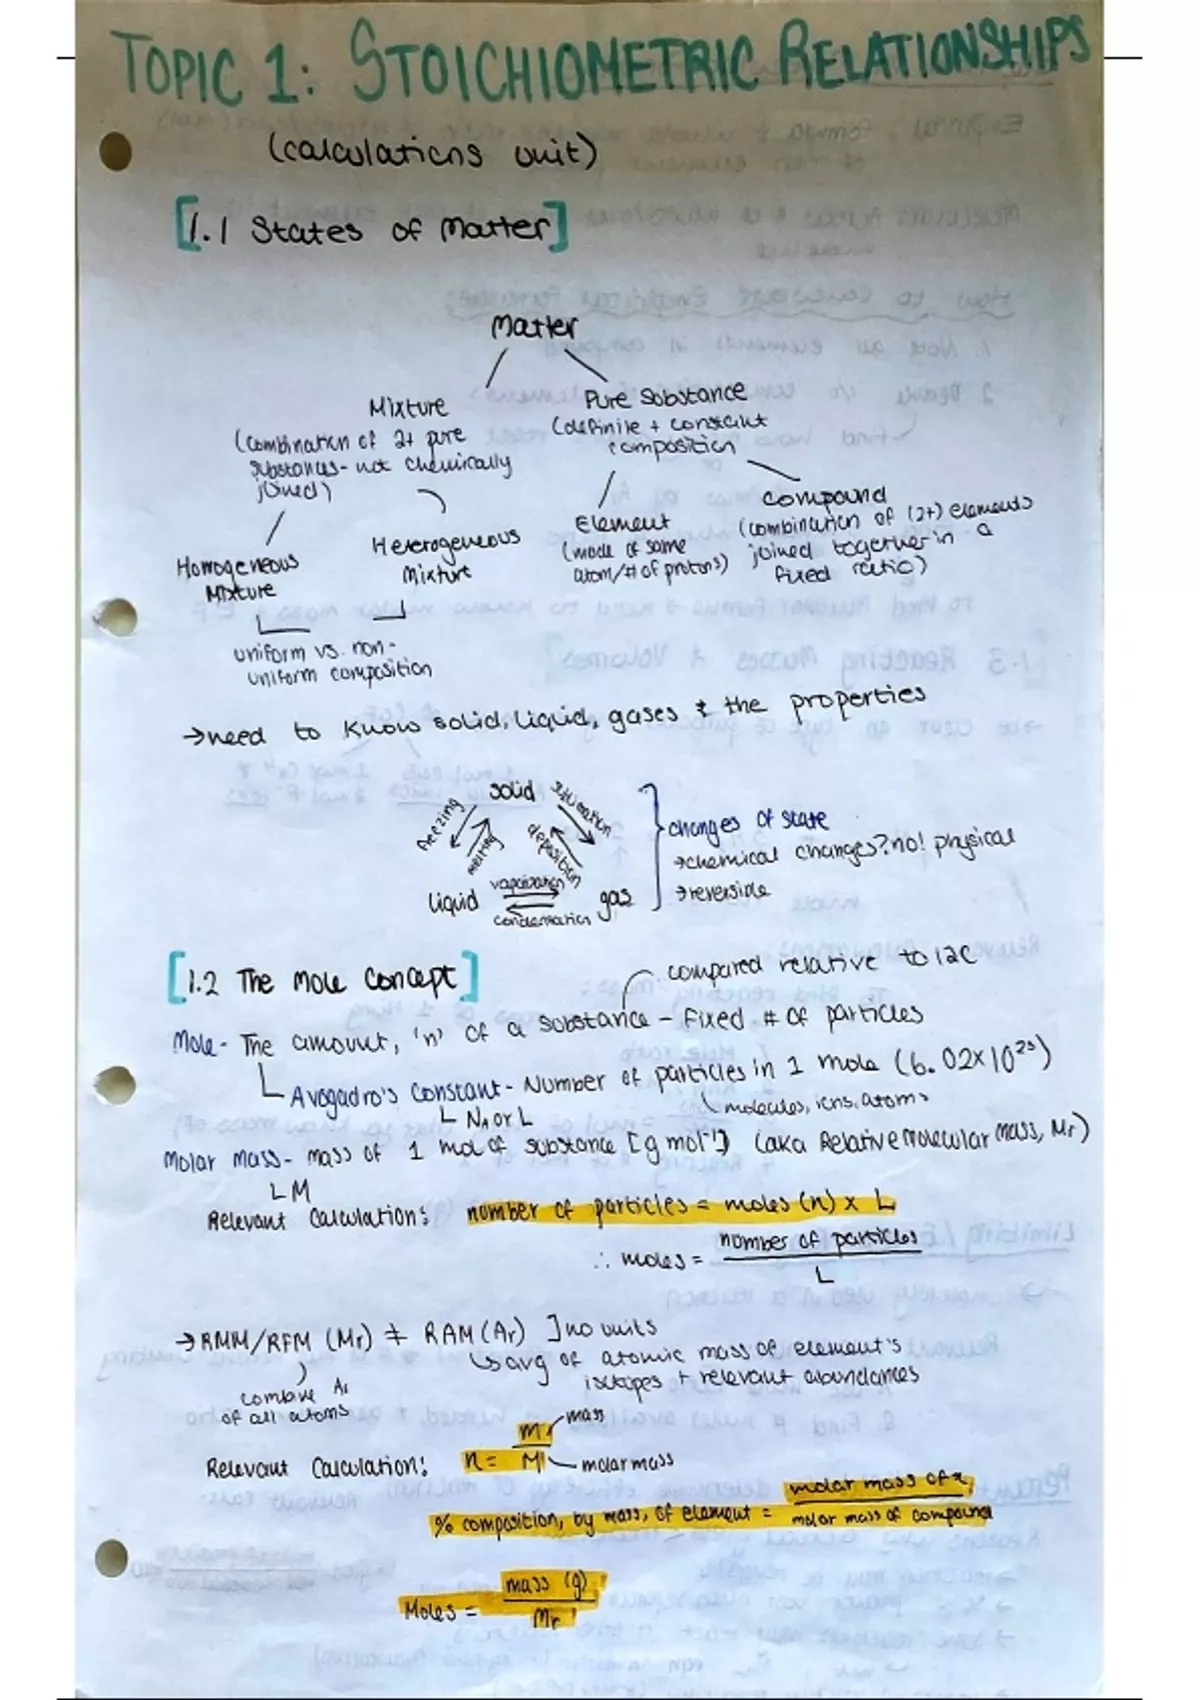 TOPIC 1: STOICHIOMETRIC RELATIONSHIPS
(calculations unit)
[1.1 States of Matter]
Matter
Mixture
(combination of 2+ pure
substances - not chemically
joined)
Pure Substance
(definite + constant
composition)
Homogeneous
Mixture
Heterogeneous
Mixture
Element
(made of same
atom/# of protons)
compound
(combination of (2+) elements
joined together in a
fixed ratio)
uniform vs. non-
uniform composition
→need to know solid, liquid, gases & the properties
solid
freezing
melting
sublimation
deposition
liquid
vaporization
condensation
gas
changes of state
→chemical changes? no! physical
→reversible
[1.2 The Mole Concept]
compared relative to 12C
Mole - The amount, 'n' of a substance - Fixed # of particles
Avogadro's Constant - Number of particles in 1 mole (6.02x10²³)
NA or L
(molecules, ions, atoms
Molar Mass - mass of 1 mol of substance [g mol⁻¹] (aka Relative Molecular mass, Mr)
M
Relevant Calculation: number of particles = moles (n) x L
∴ moles = number of particles
L
→RMM/RFM (Mr) ≠ RAM (Ar) ] no units
combine Ar
of all atoms
↳avg of atomic mass of element's
isotopes + relevant abundances
Relevant Calculation: n = m mass
M molar mass
% composition, by mass, of element = molar mass of x
molar mass of compound
Moles = mass (g)
Mr